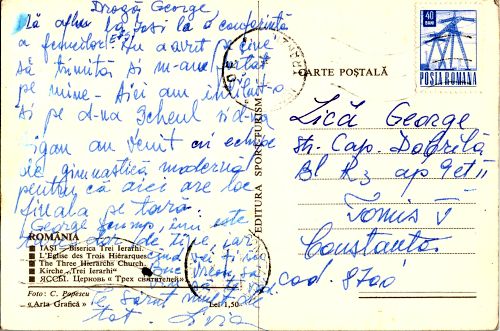 Dragă George,
Mă aflu la Iași la o conferință
a femeilor. N-au avut pe cine
să trimită și m-au
pe mine. Aici am întîlnit-o
și pe d-na și d-na
au venit cu echipa
de gimnastică modernă
pentru că aici are loc
finala pe țară.
George scump, îmi este
dor de tine, iar
cînd vei
Te sărut mult de
tot. Livia
ROMÂNIA
IAȘI - Biserica Trei Ierarhi.
L'Eglise des Trois Hiérarques.
The Three Hierarchs Church.
Kirche „Trei Ierarhi"
ЯССЫ. Церковь « Трех святителей»
Foto: C. Popescu
«Arta Grafică»
Lei 1,50
EDITURA SPORT-TURISM
CARTE POȘTALĂ
40
BANI
POSTA ROMANA
Lică George
str. Cap. Dobrilă
Bl R3 ap 9 et II
Tomis V
Constanța
cod. 8700